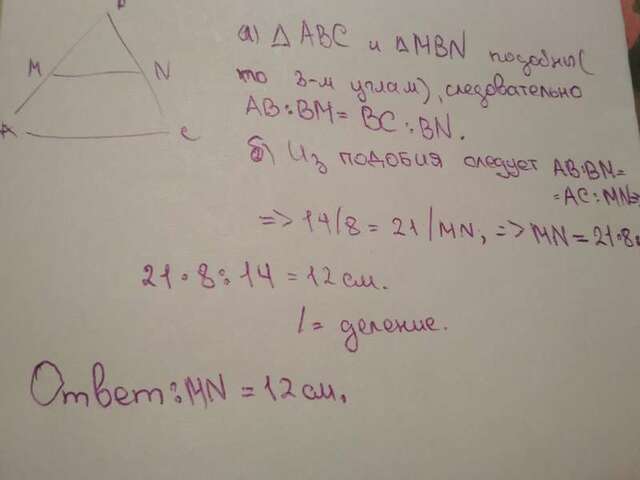 B
M
N
A
C
а) △ ABC и △MBN подобны(
по 3-м углам), следовательно
AB:BM = BC:BN.
б) Из подобия следует AB:BM=
=AC:MN=>
=> 14/8 = 21/MN, => MN = 21·8:
21·8:14 = 12 см.
/= деление.
Ответ: MN = 12 см.